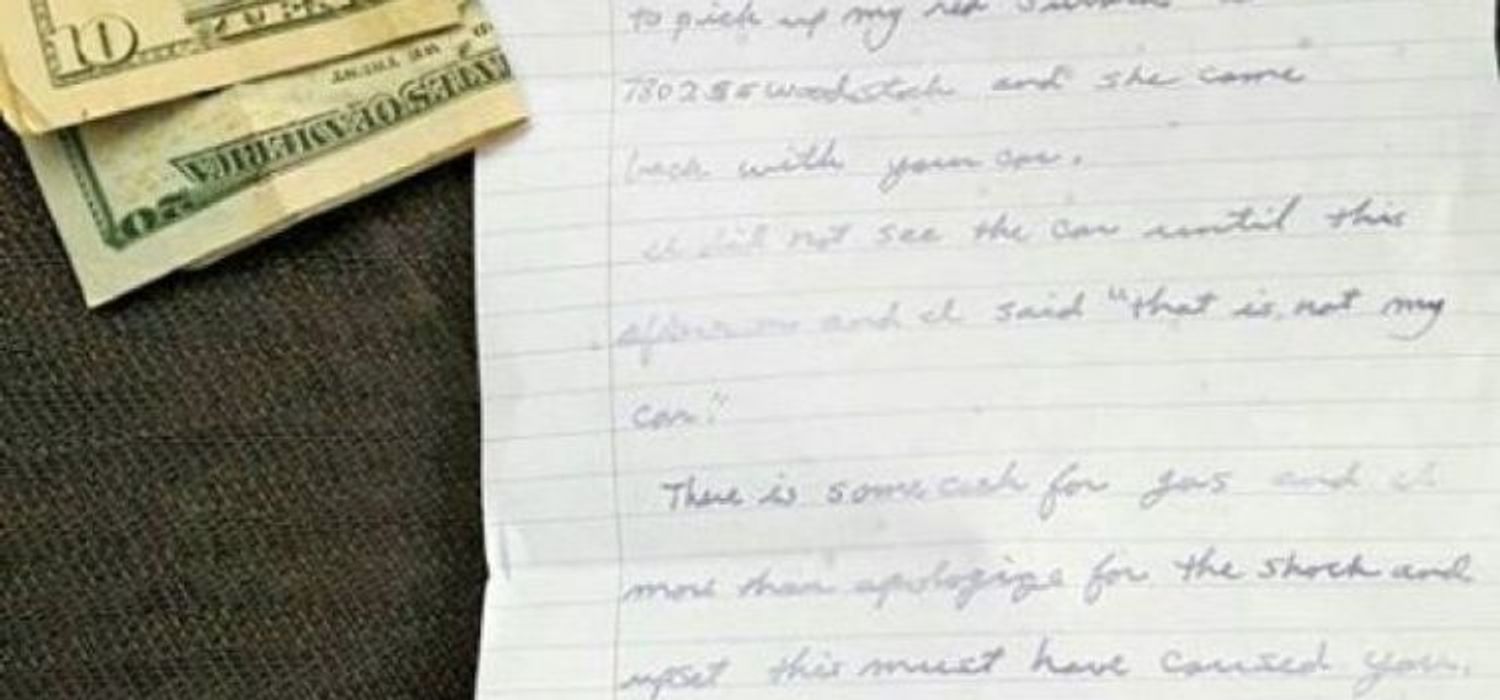 10
20
to pick up my red Subaru
7802 SE Woodstock and she came
back with your car.
I did not see the car until this
afternoon and I said "that is not my
car."
There is some cash for gas and I
more than apologize for the shock and
upset this must have caused you.